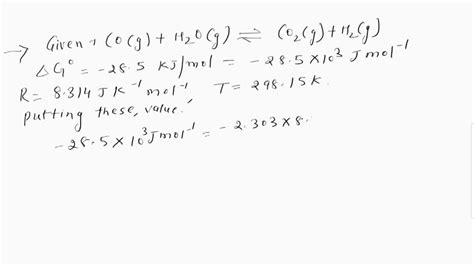 → Given, CO(g) + H₂O(g) ⇌ CO₂(g) + H₂(g)
ΔG° = -28.5 KJ/mol = -28.5×10³ J mol⁻¹
R = 8.314 J K⁻¹ mol⁻¹, T = 298.15K.
putting these, value,
-28.5×10³ J mol⁻¹ = -2.303×8.